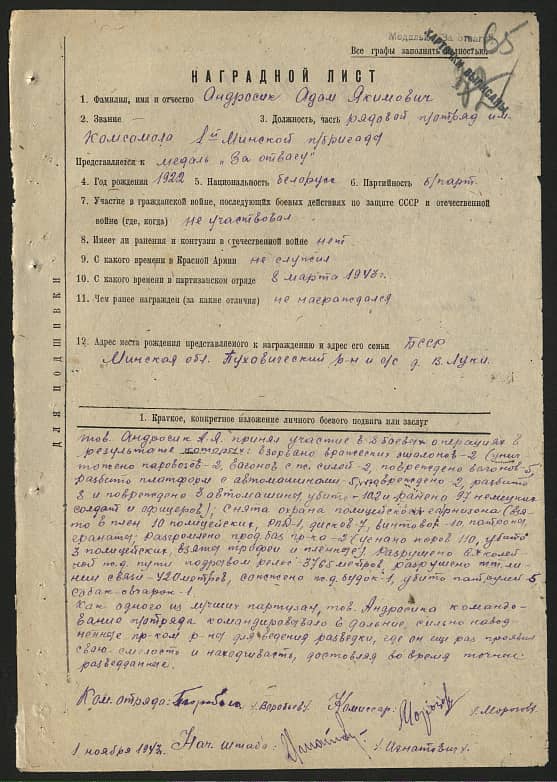 Медаль "За отвагу"
Все графы заполнять полностью.
КАРТОЧКИ ВЫПИСАНЫ
НАГРАДНОЙ ЛИСТ
1. Фамилия, имя и отчество Андросик Адам Якимович
2. Звание — 3. Должность, часть рядовой п/отряд им.
Комсомола 1-й Минской п/бригады
Представляется к медаль „За отвагу"
4. Год рождения 1922 5. Национальность белорус 6. Партийность б/парт.
7. Участие в гражданской войне, последующих боевых действиях по защите СССР и отечественной
войне (где, когда) не участвовал
8. Имеет ли ранения и контузии в отечественной войне нет
9. С какого времени в Красной Армии не служил
10. С какого времени в партизанском отряде 8 марта 1943г.
11. Чем ранее награжден (за какие отличия) не награждался
12. Адрес места рождения представляемого к награждению и адрес его семьи БССР
Минская обл. Пуховический р-н с/с д. В. Луки.
ДЛЯ ПОДШИВКИ
1. Краткое, конкретное изложение личного боевого подвига или заслуг
тов. Андросик А.Я. принял участие в боевых операциях в
результате которых: взорвано вражеских эшалонов-2 (унич
тожено паровозов-2, вагонов с ж. силей-2, повреждено вагонов-5,
разбито платформ с автомашинами-5, повреждено 2, разбито
3 и повреждено 3 автомашины, убито-102 и ранено 97 немецких
солдат и офицеров); Снята охрана полицейского гарнизона (взя-
то в плен 10 полицейских, РПД-1, дисков-7, винтовок-10, патроны,
гранаты; Разгромлено прод. баз пр-ка-2 (угнано коров 110, убито
3 полицейских, взяты трофеи и пленные). Разрушено в колей-
ной ж.д. пути подрывом рельс-3765 метров, разрушено тт. ли-
нии связи-420 метров, сожжено ж.д. будок-1, убито патрулей-5
собак-овчарок-1.
Как одного из лучших партизан, тов. Андросика командо-
вание п/отряда командировывало в дальние, сильно навод-
ненные пр-ком р-ны для ведения разведки, где он еще раз проявил
свою смелость и находчивость, доставляя во время точные
разведданные.
Ком. отряда: /Воробьев/. Комиссар: /Морозов/
1 ноября 1943г. Нач. штаба: /Игнатович/.